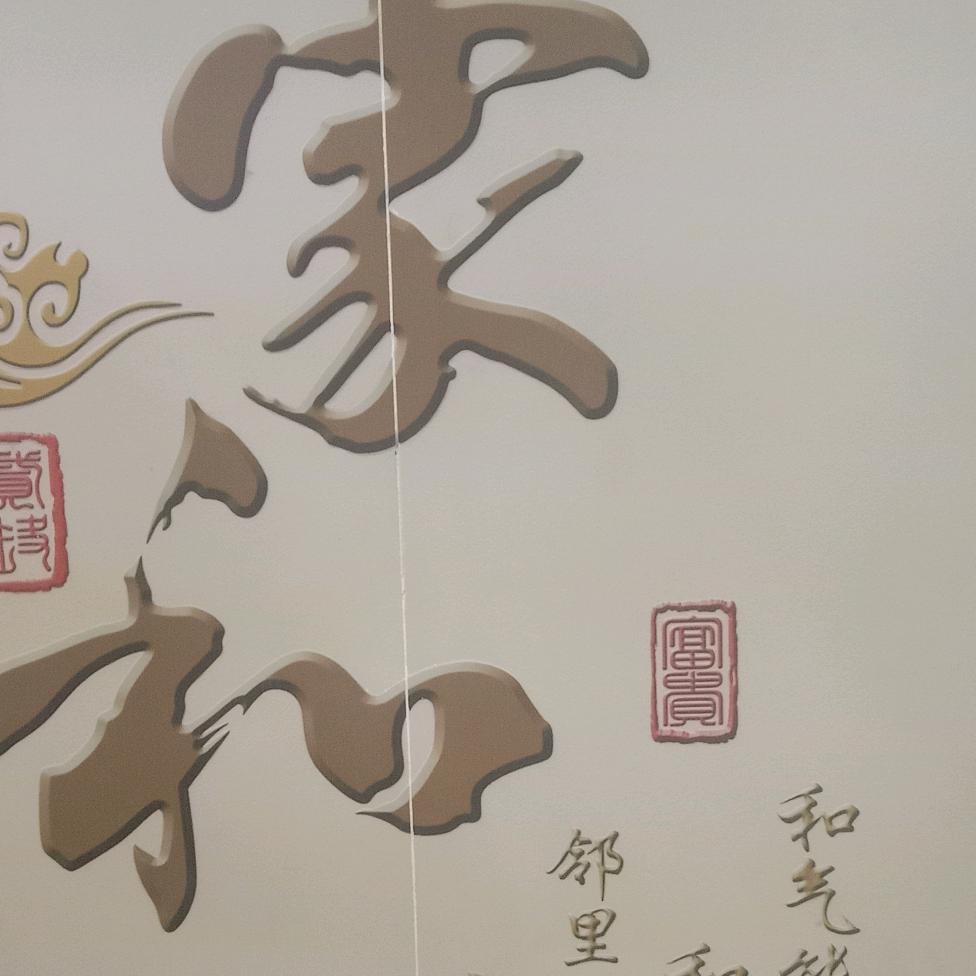 家
和
富貴
和气
和
邻里